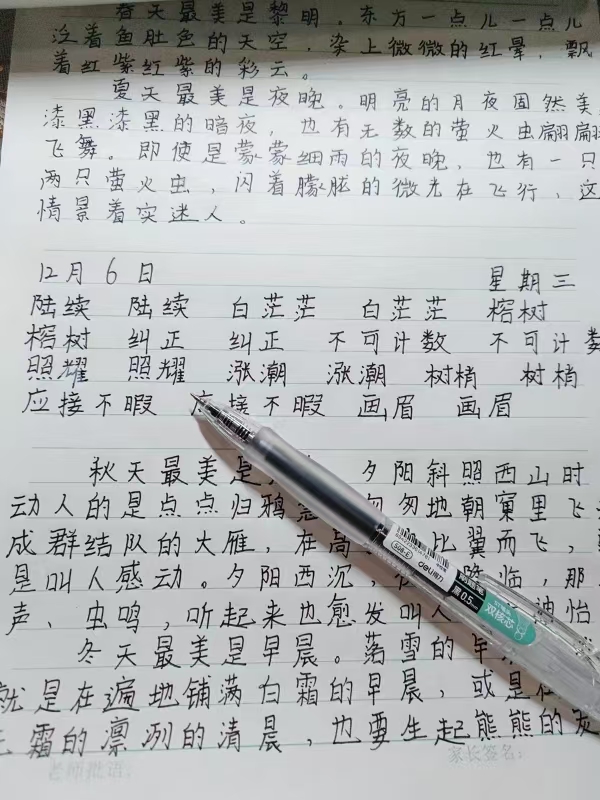 春天最美是黎明。东方一点儿一点儿
泛着鱼肚色的天空,染上微微的红晕,飘
着红紫红紫的彩云。
夏天最美是夜晚。明亮的月夜固然美,
漆黑漆黑的暗夜,也有无数的萤火虫翩翩
飞舞。即使是蒙蒙细雨的夜晚,也有一只
两只萤火虫,闪着朦胧的微光在飞行,这
情景着实迷人。
12月6日 星期三
陆续 陆续 白茫茫 白茫茫 榕树
榕树 纠正 纠正 不可计数 不可计数
照耀 照耀 涨潮 涨潮 树梢 树梢
应接不暇 应接不暇 画眉 画眉
秋天最美是 夕阳斜照西山时
动人的是点点归鸦 匆匆地朝窠里飞
成群结队的大雁,在高 比翼而飞,
是叫人感动。夕阳西沉, 临,那
声、虫鸣,听起来也愈发叫人 怡
冬天最美是早晨。落雪的早
就是在遍地铺满白霜的早晨,或是在
霜的凛冽的清晨,也要生起熊熊的
老师批语: 家长签名:
S08-E deli得力
黑0.5
双核芯